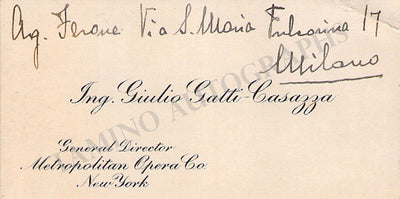 Ag. Ferone Via S. Maria Fulcorina 17
Milano
Ing. Giulio Gatti-Casazza
General Director
Metropolitan Opera Co.
New York
TAMINO AUTOGRAPHS